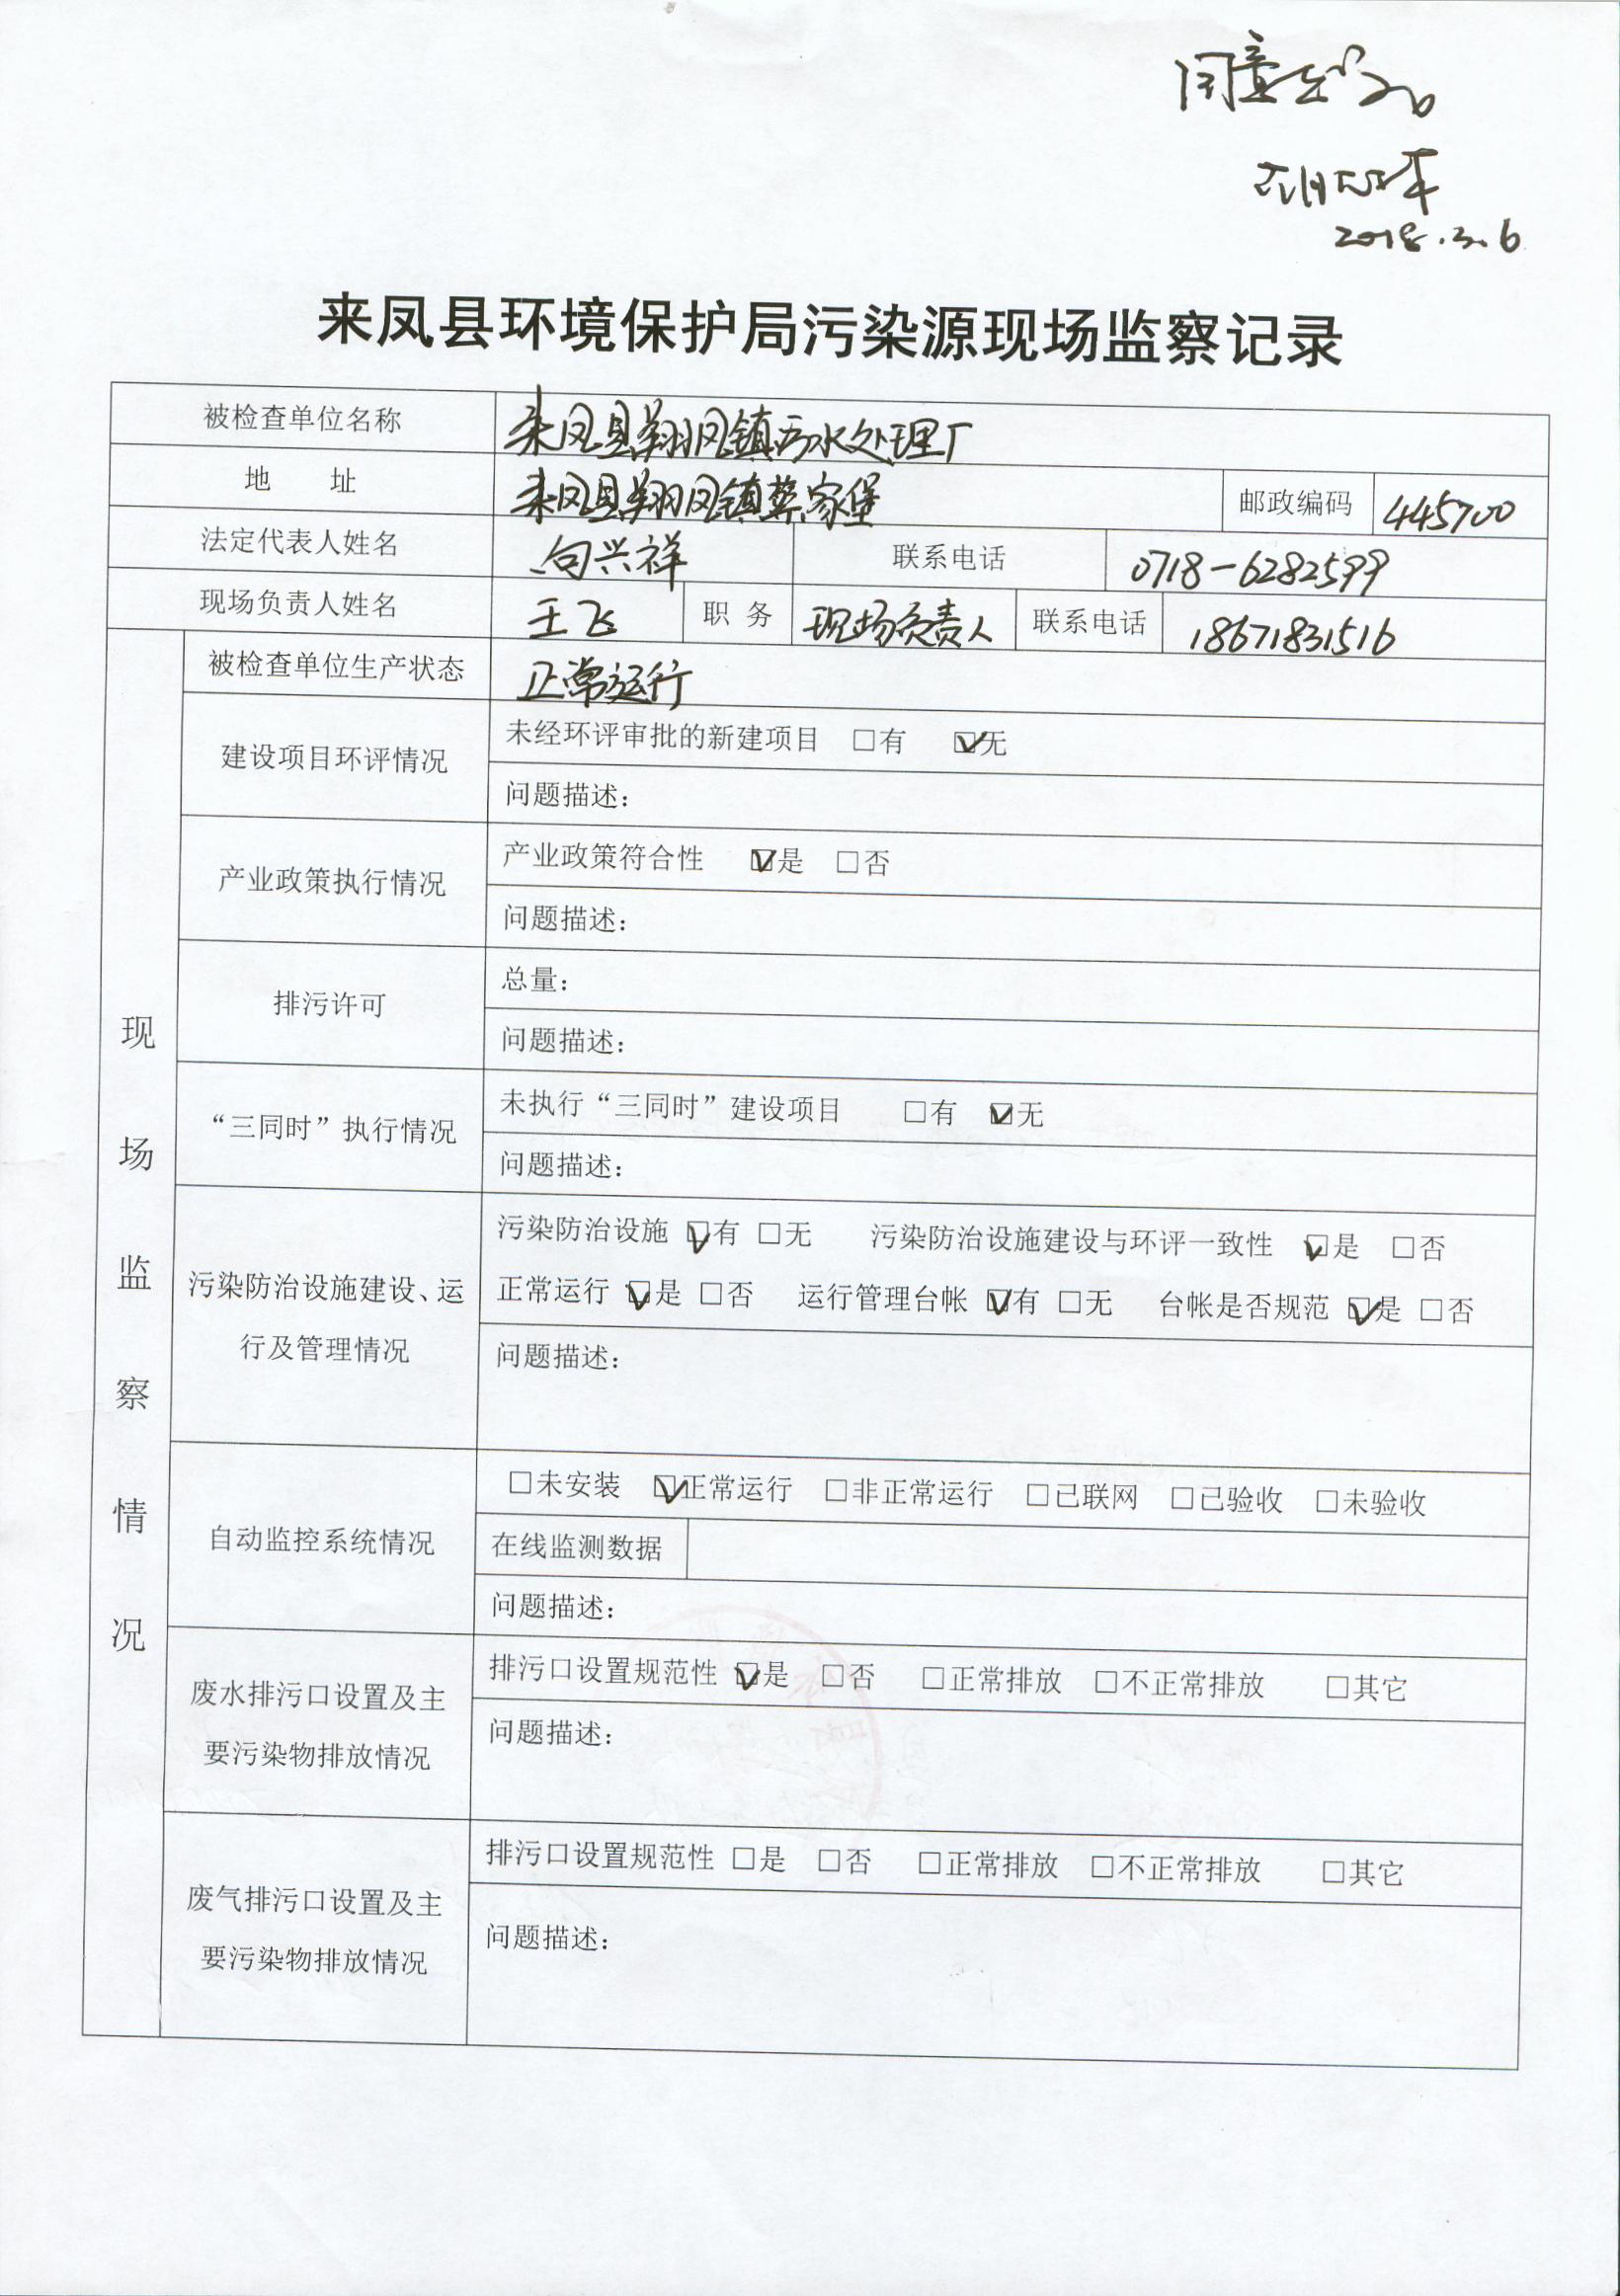 同意
2018.3.6
来凤县环境保护局污染源现场监察记录
被检查单位名称 来凤县翔凤镇污水处理厂
地 址 来凤县翔凤镇蔡家堡 邮政编码 445700
法定代表人姓名 向兴祥 联系电话 0718-6282599
现场负责人姓名 王飞 职 务 现场负责人 联系电话 18671831516
现场监察情况
被检查单位生产状态 正常运行
建设项目环评情况
未经环评审批的新建项目 □有 ☑无
问题描述：
产业政策执行情况
产业政策符合性 ☑是 □否
问题描述：
排污许可
总量：
问题描述：
“三同时”执行情况
未执行“三同时”建设项目 □有 ☑无
问题描述：
污染防治设施建设、运
行及管理情况
污染防治设施 ☑有 □无 污染防治设施建设与环评一致性 ☑是 □否
正常运行 ☑是 □否 运行管理台帐 ☑有 □无 台帐是否规范 ☑是 □否
问题描述：
自动监控系统情况
□未安装 ☑正常运行 □非正常运行 □已联网 □已验收 □未验收
在线监测数据
问题描述：
废水排污口设置及主
要污染物排放情况
排污口设置规范性 ☑是 □否 □正常排放 □不正常排放 □其它
问题描述：
废气排污口设置及主
要污染物排放情况
排污口设置规范性 □是 □否 □正常排放 □不正常排放 □其它
问题描述：